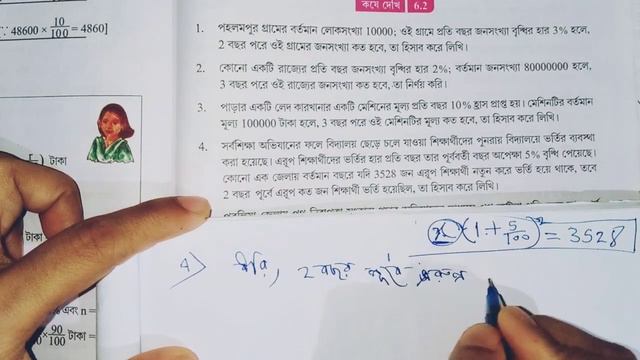 ∵ 48600 × 10/100 = 4860]
কষে দেখি 6.2
1. পহলমপুর গ্রামের বর্তমান লোকসংখ্যা 10000; ওই গ্রামে প্রতি বছর জনসংখ্যা বৃদ্ধির হার 3% হলে,
2 বছর পরে ওই গ্রামের জনসংখ্যা কত হবে, তা হিসাব করে লিখি।
2. কোনো একটি রাজ্যের প্রতি বছর জনসংখ্যা বৃদ্ধির হার 2%; বর্তমান জনসংখ্যা 80000000 হলে,
3 বছর পরে ওই রাজ্যের জনসংখ্যা কত হবে, তা নির্ণয় করি।
3. পাড়ার একটি লেদ কারখানার একটি মেশিনের মূল্য প্রতি বছর 10% হ্রাস প্রাপ্ত হয়। মেশিনটির বর্তমান
মূল্য 100000 টাকা হলে, 3 বছর পরে ওই মেশিনটির মূল্য কত হবে, তা হিসাব করে লিখি।
4. সর্বশিক্ষা অভিযানের ফলে বিদ্যালয় ছেড়ে চলে যাওয়া শিক্ষার্থীদের পুনরায় বিদ্যালয়ে ভর্তির ব্যবস্থা
করা হয়েছে। এরূপ শিক্ষার্থীদের ভর্তির হার প্রতি বছর তার পূর্ববর্তী বছর অপেক্ষা 5% বৃদ্ধি পেয়েছে।
কোনো এক জেলায় বর্তমান বছরে যদি 3528 জন এরূপ শিক্ষার্থী নতুন করে ভর্তি হয়ে থাকে, তবে
2 বছর পূর্বে এরূপ কত জন শিক্ষার্থী ভর্তি হয়েছিল, তা হিসাব করে লিখি।
টাকা
x(1+5/100)^2 = 3528
4) ধরি, 2 বছর পূর্বে এরূপ
টাকা
এবং n =
× 90/100 টাকা =